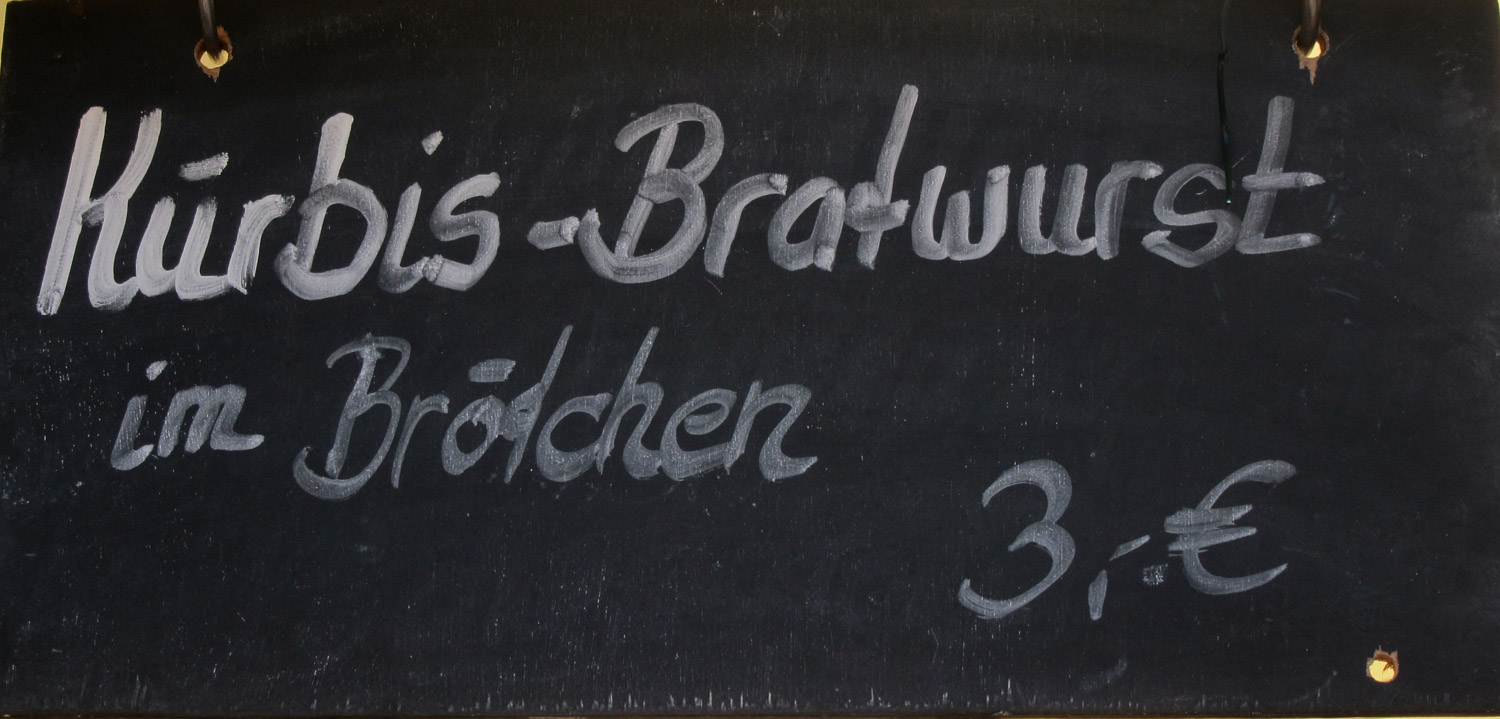 Kürbis-Bratwurst
im Brötchen
3,-€